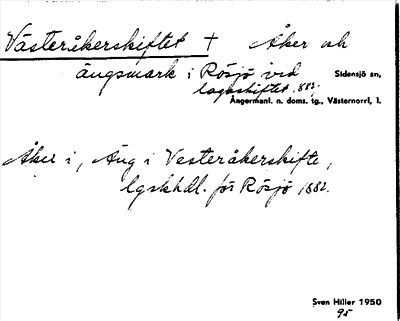 Västeråkerskiftet † Åker och
ängsmark i Rösjö vid Sidensjö sn,
lagaskiftet 1882.
Ångermanl. n. doms. tg., Västernorrl, l.
Åker i, Äng i Vesteråkerskifte,
lgskhdl. för Rösjö 1882.
Sven Hiller 1950
95